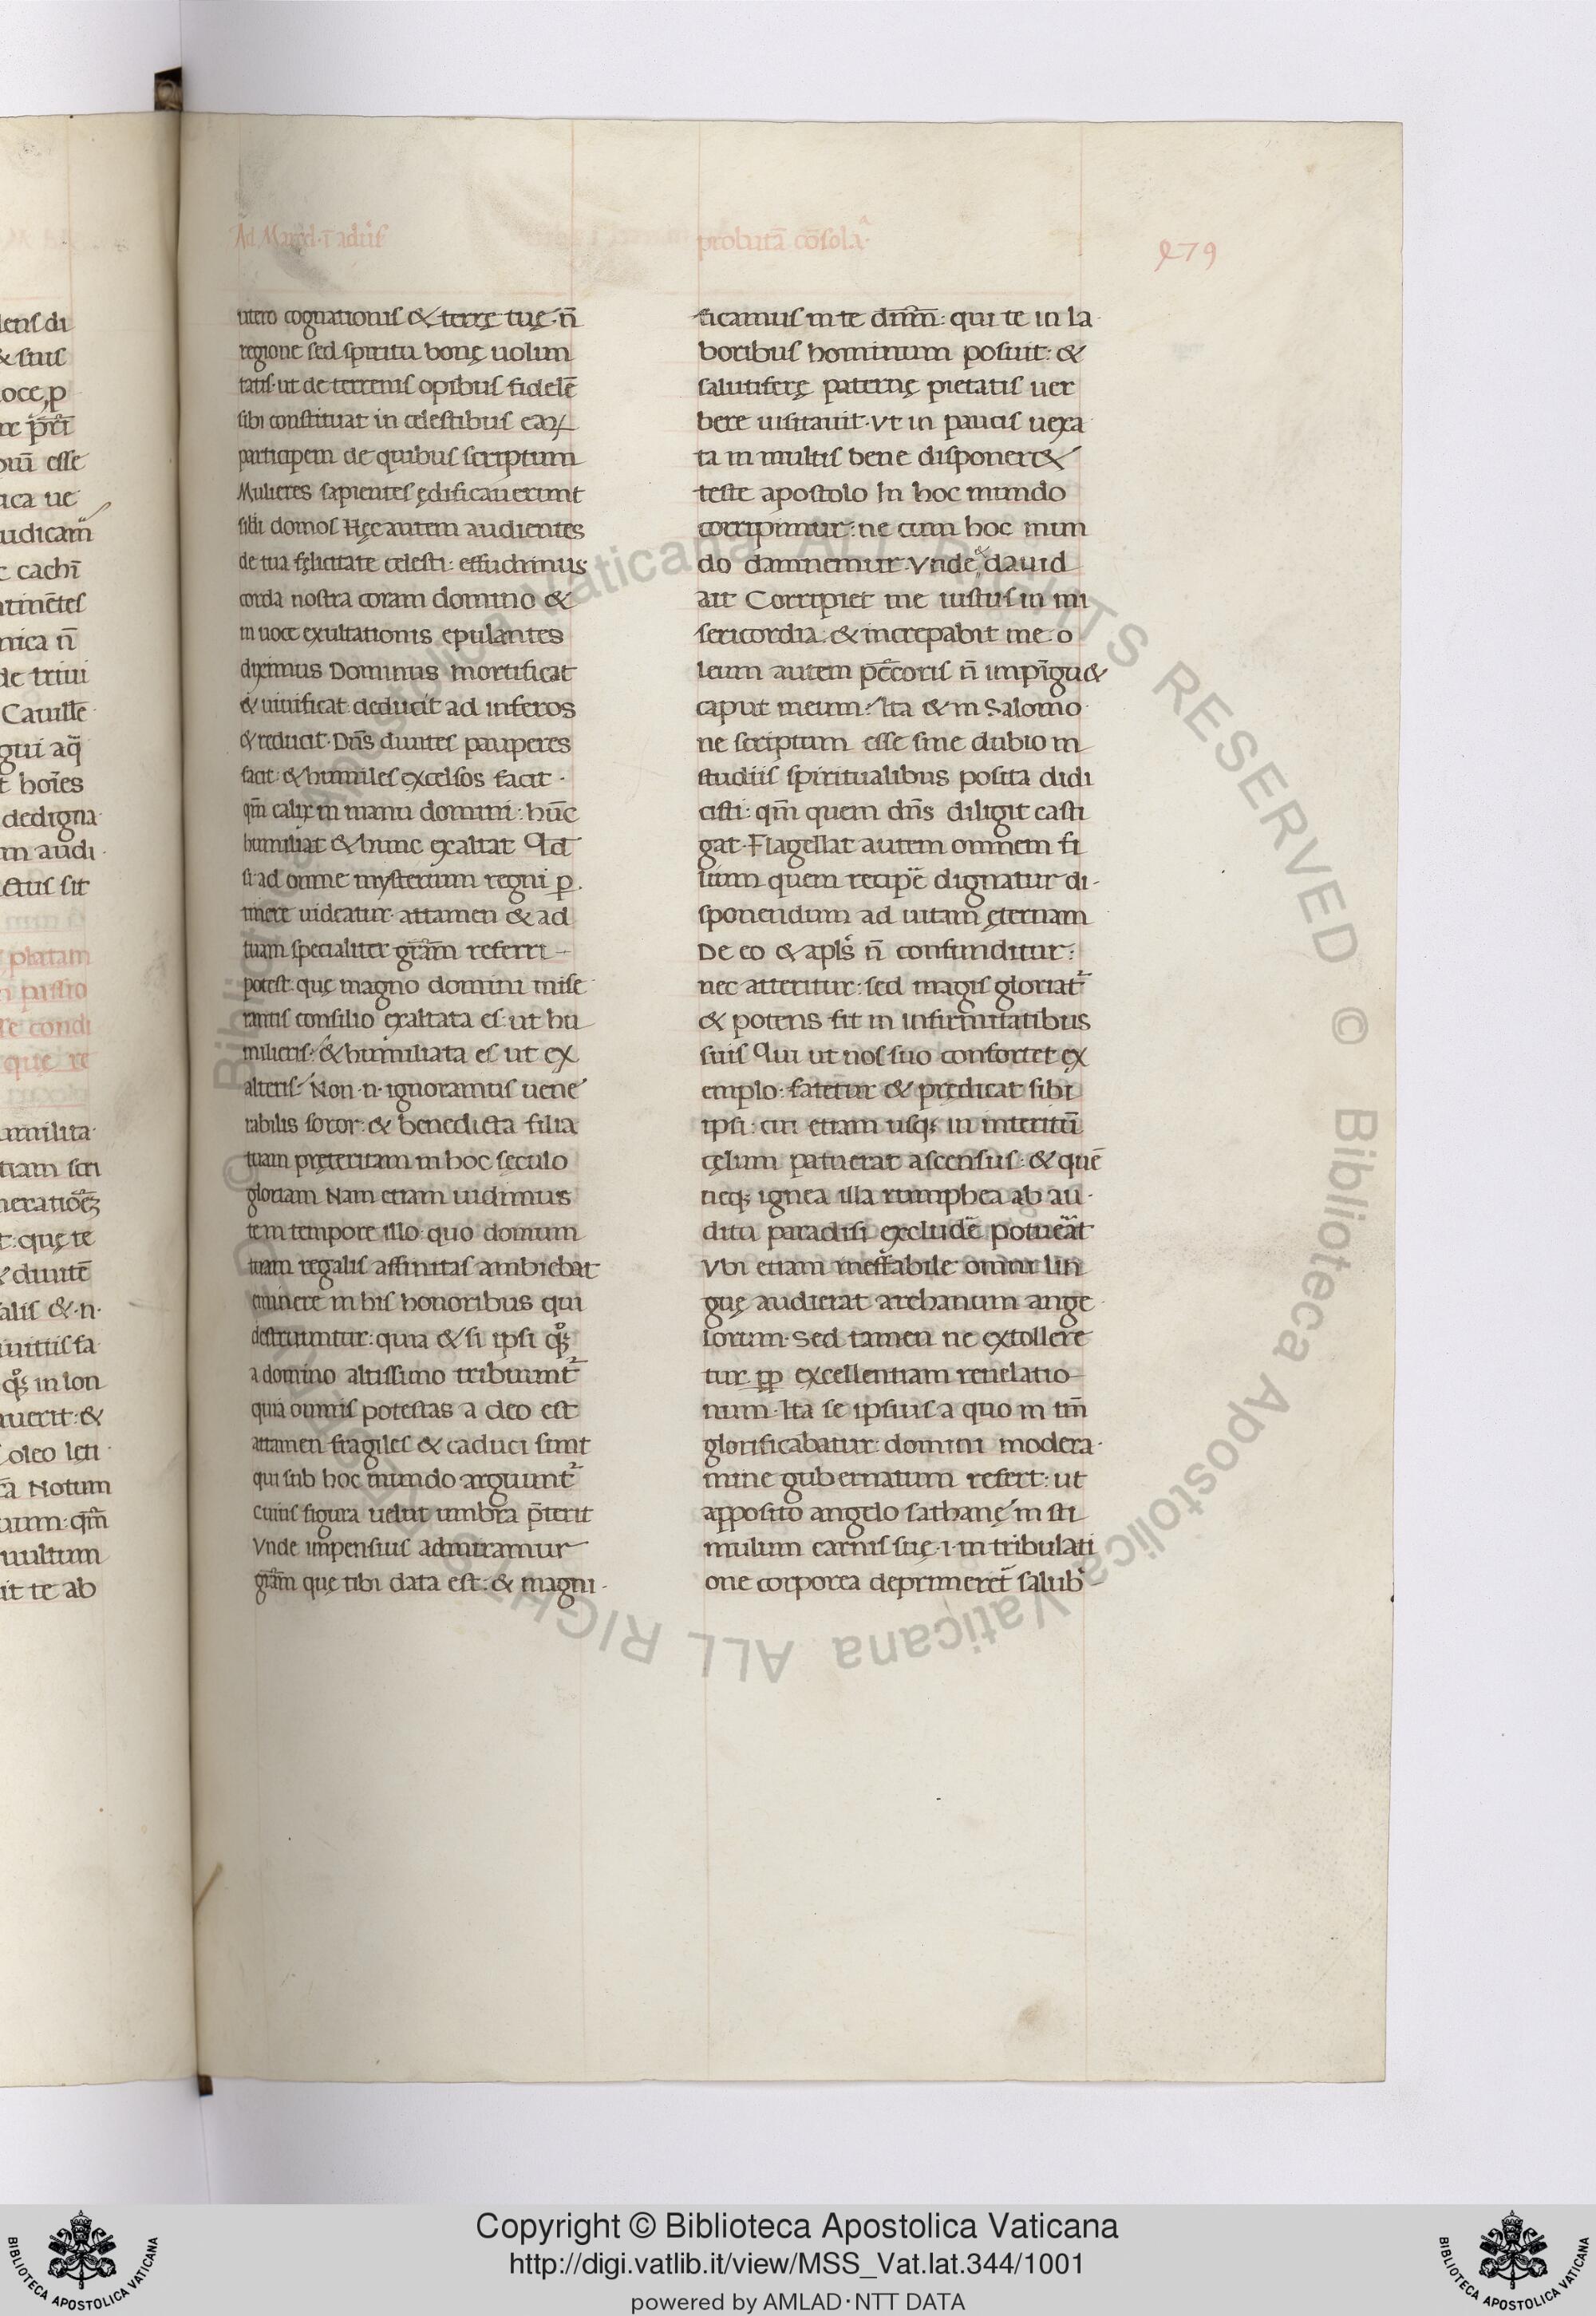 Ad Marcel. ī aduẽs
probatā cōsola.
479
utero cognationis & terrę tuę. n̄
regione sed spiritu bonę uolun
tatis. ut de terrenis opibus fidelē
sibi constituat in celestibus earꝝ
participem de quibus scriptum
Mulieres sapientes ędificauerunt
sibi domos Hęc autem audientes
de tua fęlicitate celesti: effudimus
corda nostra coram domino &
in uoce exultationis epulantes
diximus Dominus mortificat
& uiuificat deducit ad inferos
& reducit. Dn̄s diuites pauperes
facit: & humiles excelsos facit.
qm̄ calix in manu domini: hūc
humiliat & hunc exaltat Qd̄
si ad omne mysterium regni ꝑ
tinere uideatur. attamen & ad
tuam specialiter grām referri
potest. quę magno domini mise
rantis consilio exaltata es. ut hu
milieris: & humiliata es ut ex
alteris. Non .n. ignoramus uene
rabilis soror: & benedicta filia
tuam pręteritam in hoc sęculo
gloriam Nam etiam uidimus
tem tempore illo: quo domum
tuam regalis affinitas ambiebat
eminere in his honoribus qui
destruuntur: quia & si ipsi qͦꝫ
a domino altissimo tribuunt᷑
quia omnis potestas a deo est
attamen fragiles & caduci sunt
qui sub hoc mundo arguunt᷑
cuius figura uelut umbra p̄terit
Vnde impensius admiramur
grām quę tibi data est: & magni
ficamus in te dnm̄: qui te in la
boribus hominum posuit: &
salutiferę paternę pietatis uer
bere uisitauit. Vt in paucis uexa
ta in multis bene disponer&
teste apostolo In hoc mundo
corripimur: ne cum hoc mun
do damnemur. Vnde & dauid
ait Corripiet me iustus in mi
sericordia: & increpabit me: o
leum autem pc̄c̄oris n̄ impīgu&
caput meum. Ita & in Salomo
ne scriptum esse sine dubio in
studiis spiritualibus posita didi
cisti: qm̄ quem dn̄s diligit casti
gat. Flagellat autem omnem fi
lium quem recipē dignatur di
sponendum ad uitam ęternam
De eo & apls̄ n̄ confunditur:
nec atteritur: sed magis gloriat᷑
& potens fit in infirmitatibus
suis Qui ut nos suo confortet ex
emplo: fatetur & prędicat sibi
ipsi: cui etiam usqꝫ in interitū
cęlum patuerat ascensus: & quē
neqꝫ ignea illa rumphea ab au
ditu paradisi excludē potuēat
Vbi etiam ineffabile omni lin
guę audierat archanum ange
lorum. Sed tamen ne extollere
tur. ꝓp excellentiam reuelatio
num. Ita se ipsius a quo in tm̄
glorificabatur: domini modera
mine gubernatum refert: ut
apposito angelo sathanę in sti
mulum carnis suę .i. in tribulati
one corporea deprimeret᷑ salub᷑
lens di
& suis
uoce, p
ouī esse
tica ue
udicam̄
t cachī
ntinētes
nica n̄
de triui
Cauillē
t hoīes
dedigna
m audi
ctus sit
platam
n passio
se condi
que re
umilita
t: quę te
& diuitē
alis & .n.
uittis fa
qͦꝫ in lon
auerit: &
oleo leti
Notum
uum: qm̄
uultum
it te ab
© Biblioteca Apostolica Vaticana ALL RIGHTS RESERVED © Biblioteca Apostolica Vaticana ALL RIGHTS RESERVED
BIBLIOTECA APOSTOLICA VATICANA
Copyright © Biblioteca Apostolica Vaticana
http://digi.vatlib.it/view/MSS_Vat.lat.344/1001
powered by AMLAD·NTT DATA
BIBLIOTECA APOSTOLICA VATICANA